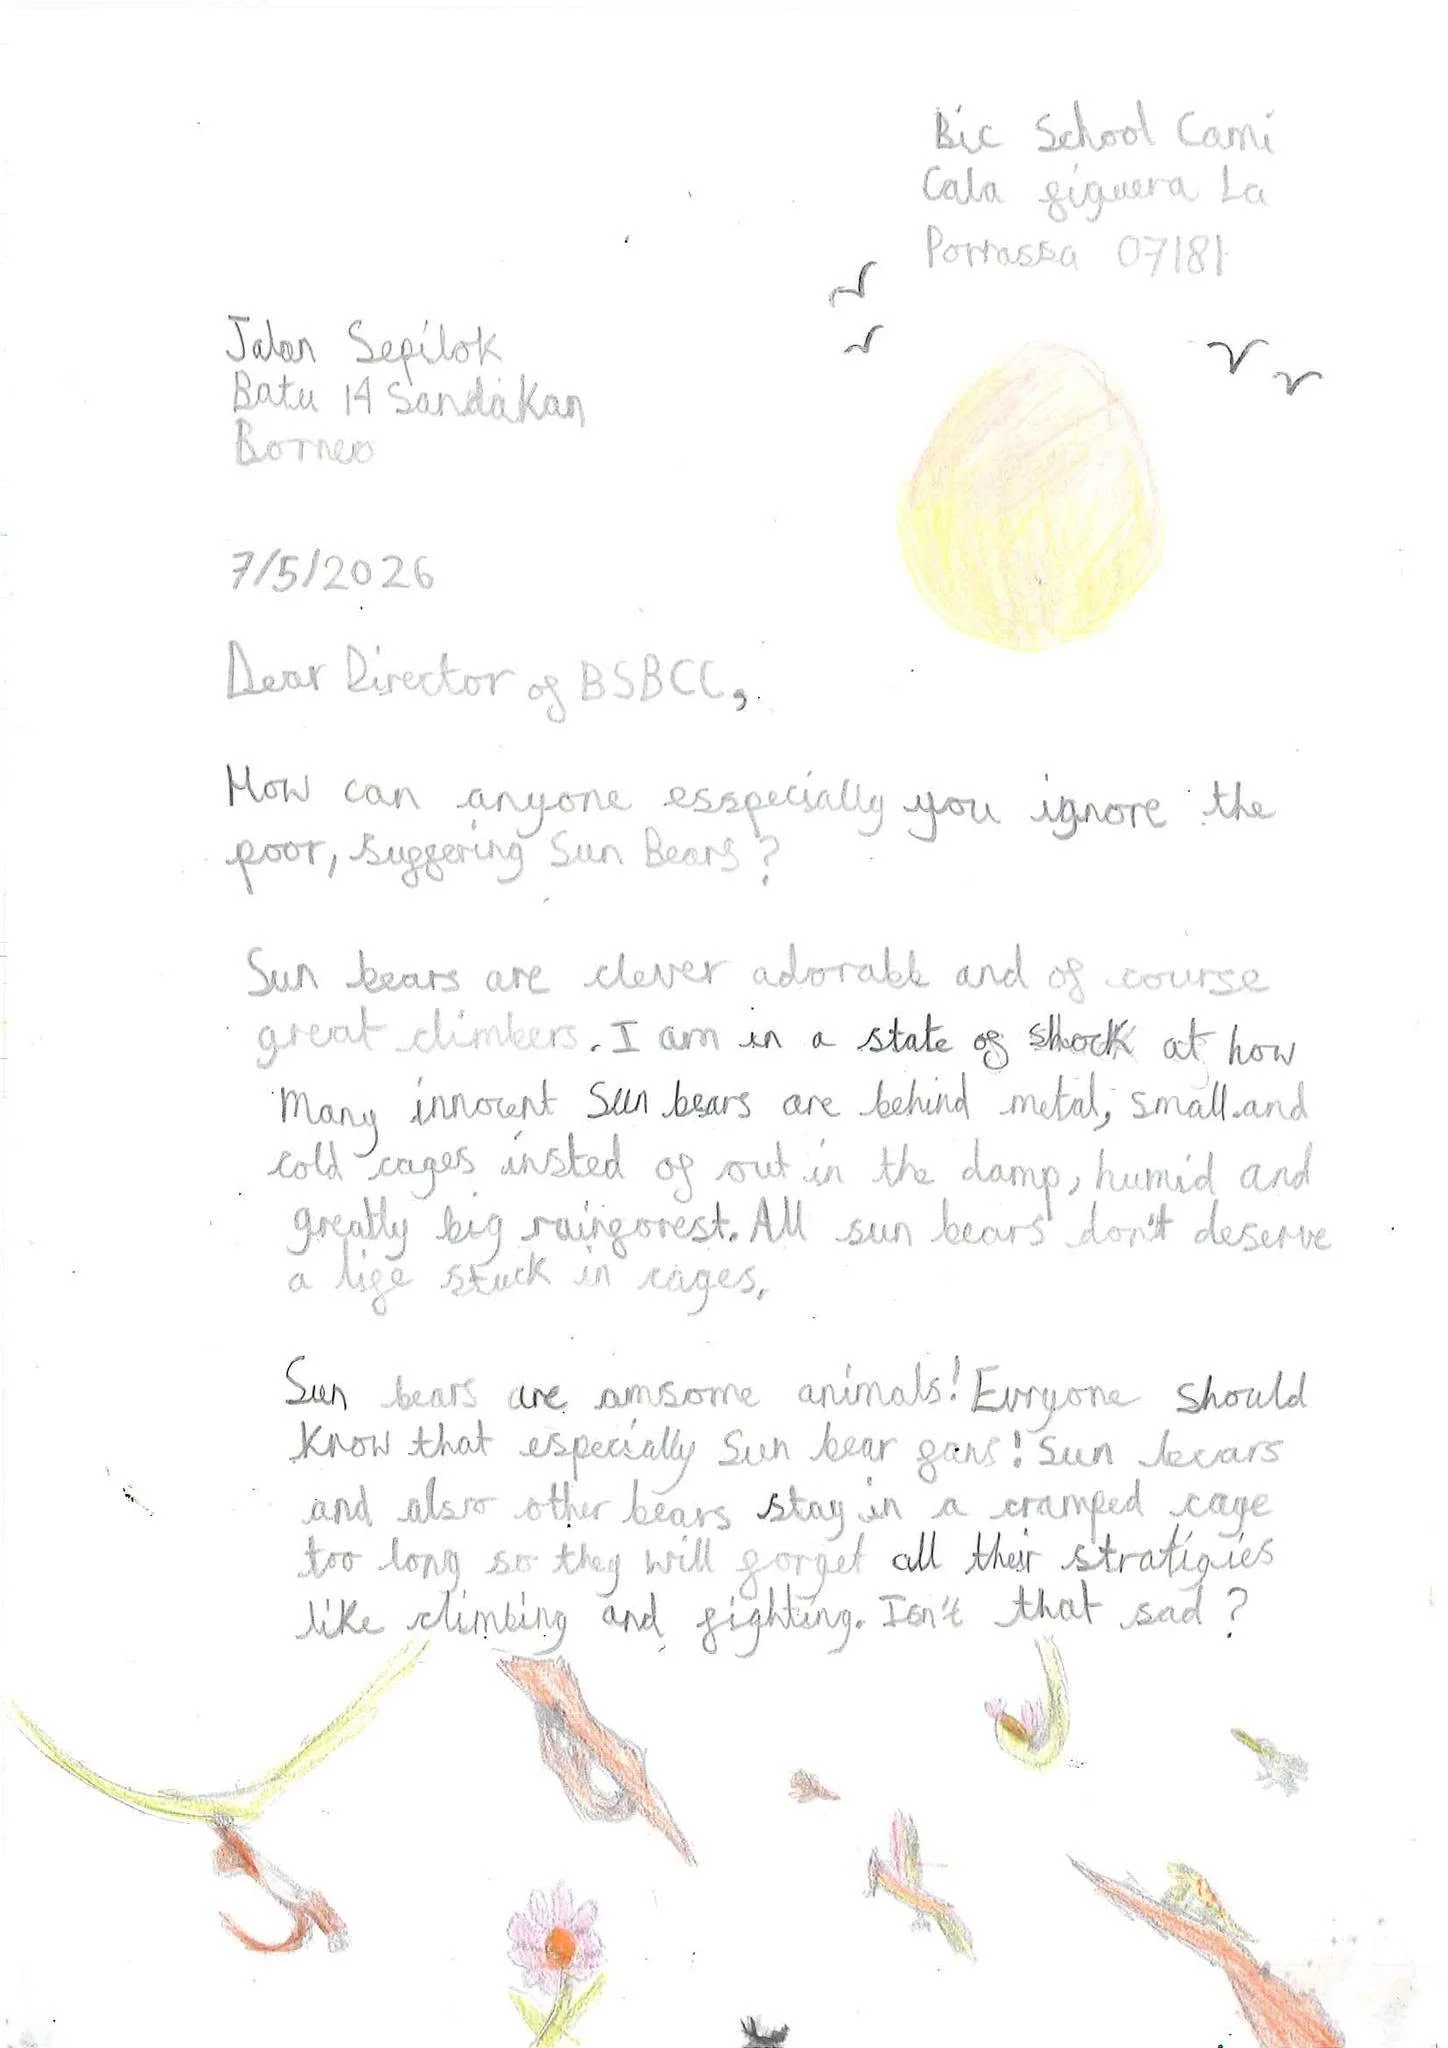 Bic School Cami
Cala figuera La
Porrassa 07181
Jalan Sepilok
Batu 14 Sandakan
Borneo
7/5/2026
Dear Director of BSBCC,
How can anyone esspecially you ignore the
poor, suffering Sun Bears?
Sun bears are clever adorable and of course
great climbers. I am in a state of shock at how
many innocent Sun bears are behind metal, small and
cold cages insted of out in the damp, humid and
greatly big rainforest. All sun bears don't deserve
a life stuck in cages.
Sun bears are amsome animals! Evryone should
know that especially Sun bear fans! Sun bears
and also other bears stay in a cramped cage
too long so they will forget all their stratigies
like climbing and fighting. Isn't that sad?